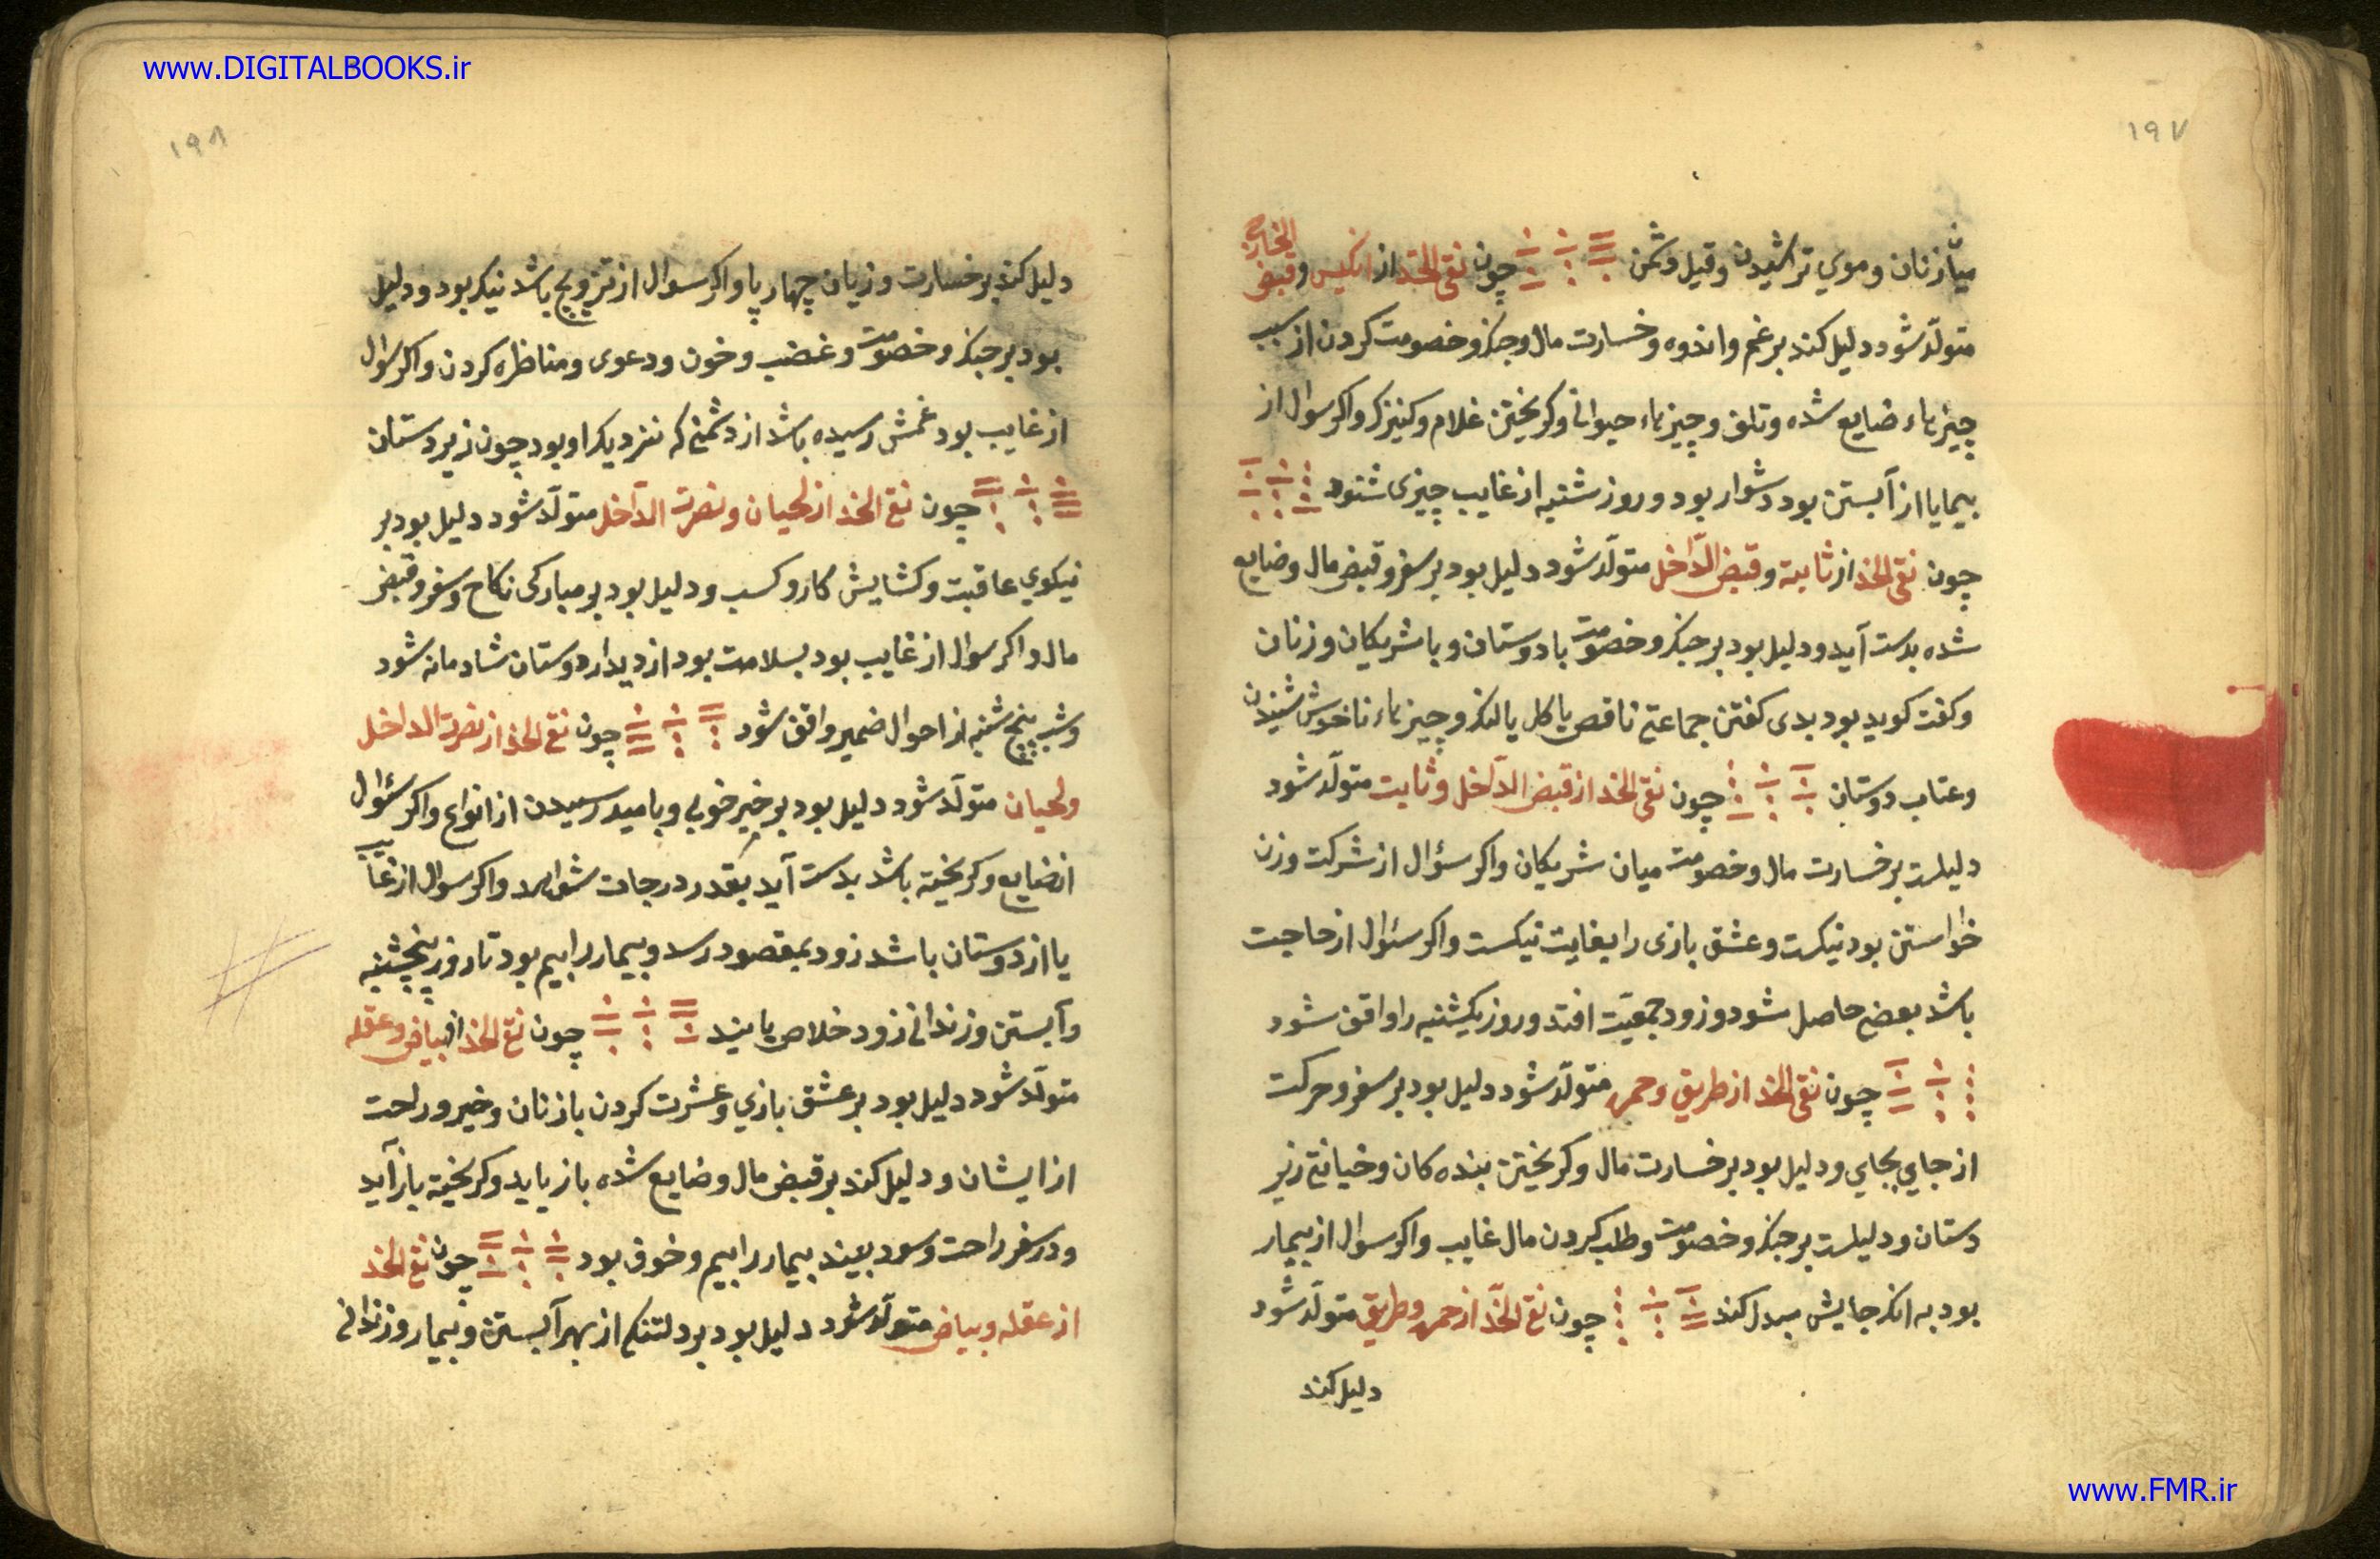 www.DIGITALBOOKS.ir
۱۹۷
میان زنان و موی تراشیدن و قیل دشمن چون نقی الخد از انکیس و قبض الخارج
متولّد شود دلیل کند بر غم و اندوه و خسارت مال و جنک و خصومت کردن از سبب
چیزهاء ضایع شده و تلف و چیزهاء حیوانی و کریختن غلام و کنیزک و اکر سوال از
بیمار یا از آبستن بود دشوار بود و روز شنبه از غایب چیزی شنود
چون نقی الخد از ثابته و قبض الدّاخل متولّد شود دلیل بود بر سفر و قبض مال و ضایع
شده بدست آید و دلیل بود بر جنک و خصومت با دوستان و با شریکان و زنان
و کفت کوید بود بدی کفتن جماعتی ناقص یا کل یا لنک و چیزهاء ناخوش شنیدن
و عتاب دوستان چون نقی الخد از قبض الدّاخل و ثابت متولّد شود
دلیلست بر خسارت مال و خصومت میان شریکان و اکر سؤال از شرکت و زن
خواستن بود نیکست و عشق بازی را بغایت نیکست و اکر سئوال از حاجت
باشد بعضی حاصل شود و زود جمعیّت افتد و روز یکشنبه را واقف شود
چون نقی الخد از طریق و حمره متولّد شود دلیل بود بر سفر و حرکت
از جای بجای و دلیل بود بر خسارت مال و کریختن بنده کان و خیانتی زیر
دستان و دلیلست بر جنک و خصومت و طلب کردن مال غایب و اکر سوال از بیمار
بود به انک جایش مبدل کند چون نقی الخد از حمره و طریق متولّد شود
دلیل کند
۱۹۸
دلیل کند بر خسارت و زیان چهارپا و اکر سوال از تزویج باشد نیکو بود و دلیل
بود بر جنک و خصومت و غضب و خون و دعوی و مناظره کردن و اکر سوال
از غایب بود غمش رسیده باشد از دشمنی که نزدیک او بود چون زیردستان
چون نقی الخد از لحیان و نصرت الدّاخل متولّد شود دلیل بود بر
نیکوی عاقبت و کشایش کار و کسب و دلیل بود بر مبارکی نکاح و سفر و قبض
مال و اکر سوال از غایب بود بسلامت بود از دیدار دوستان شادمانه شود
و شب پنج شنبه از احوال ضمیر واقف شود چون نقی الخد از نصرت الداخل
و لحیان متولّد شود دلیل بود بر خیر خوبی و بامید رسیدن از انواع و اکر سئوال
از ضایع و کریخته باشد بدست آید بقدر درجات شواهد و اکر سوال از غایب
یا از دوستان باشد زود بمقصود رسد و بیمار را بیم بود تا روز پنجشنبه
و آبستن و زندانی زود خلاص یابند چون نقی الخد از بیاض و عقله
متولّد شود دلیل بود بر عشق بازی و عشرت کردن با زنان و خیر و راحت
از ایشان و دلیل کند بر قبض مال و ضایع شده باز یابد و کریخته باز آید
و در سفر راحت و سود بیند بیمار را بیم و خوف بود چون نقی الخد
از عقله و بیاض متولّد شود دلیل بود بر دلتنکی از بهر آبستن و بیمار و زندانی
www.FMR.ir